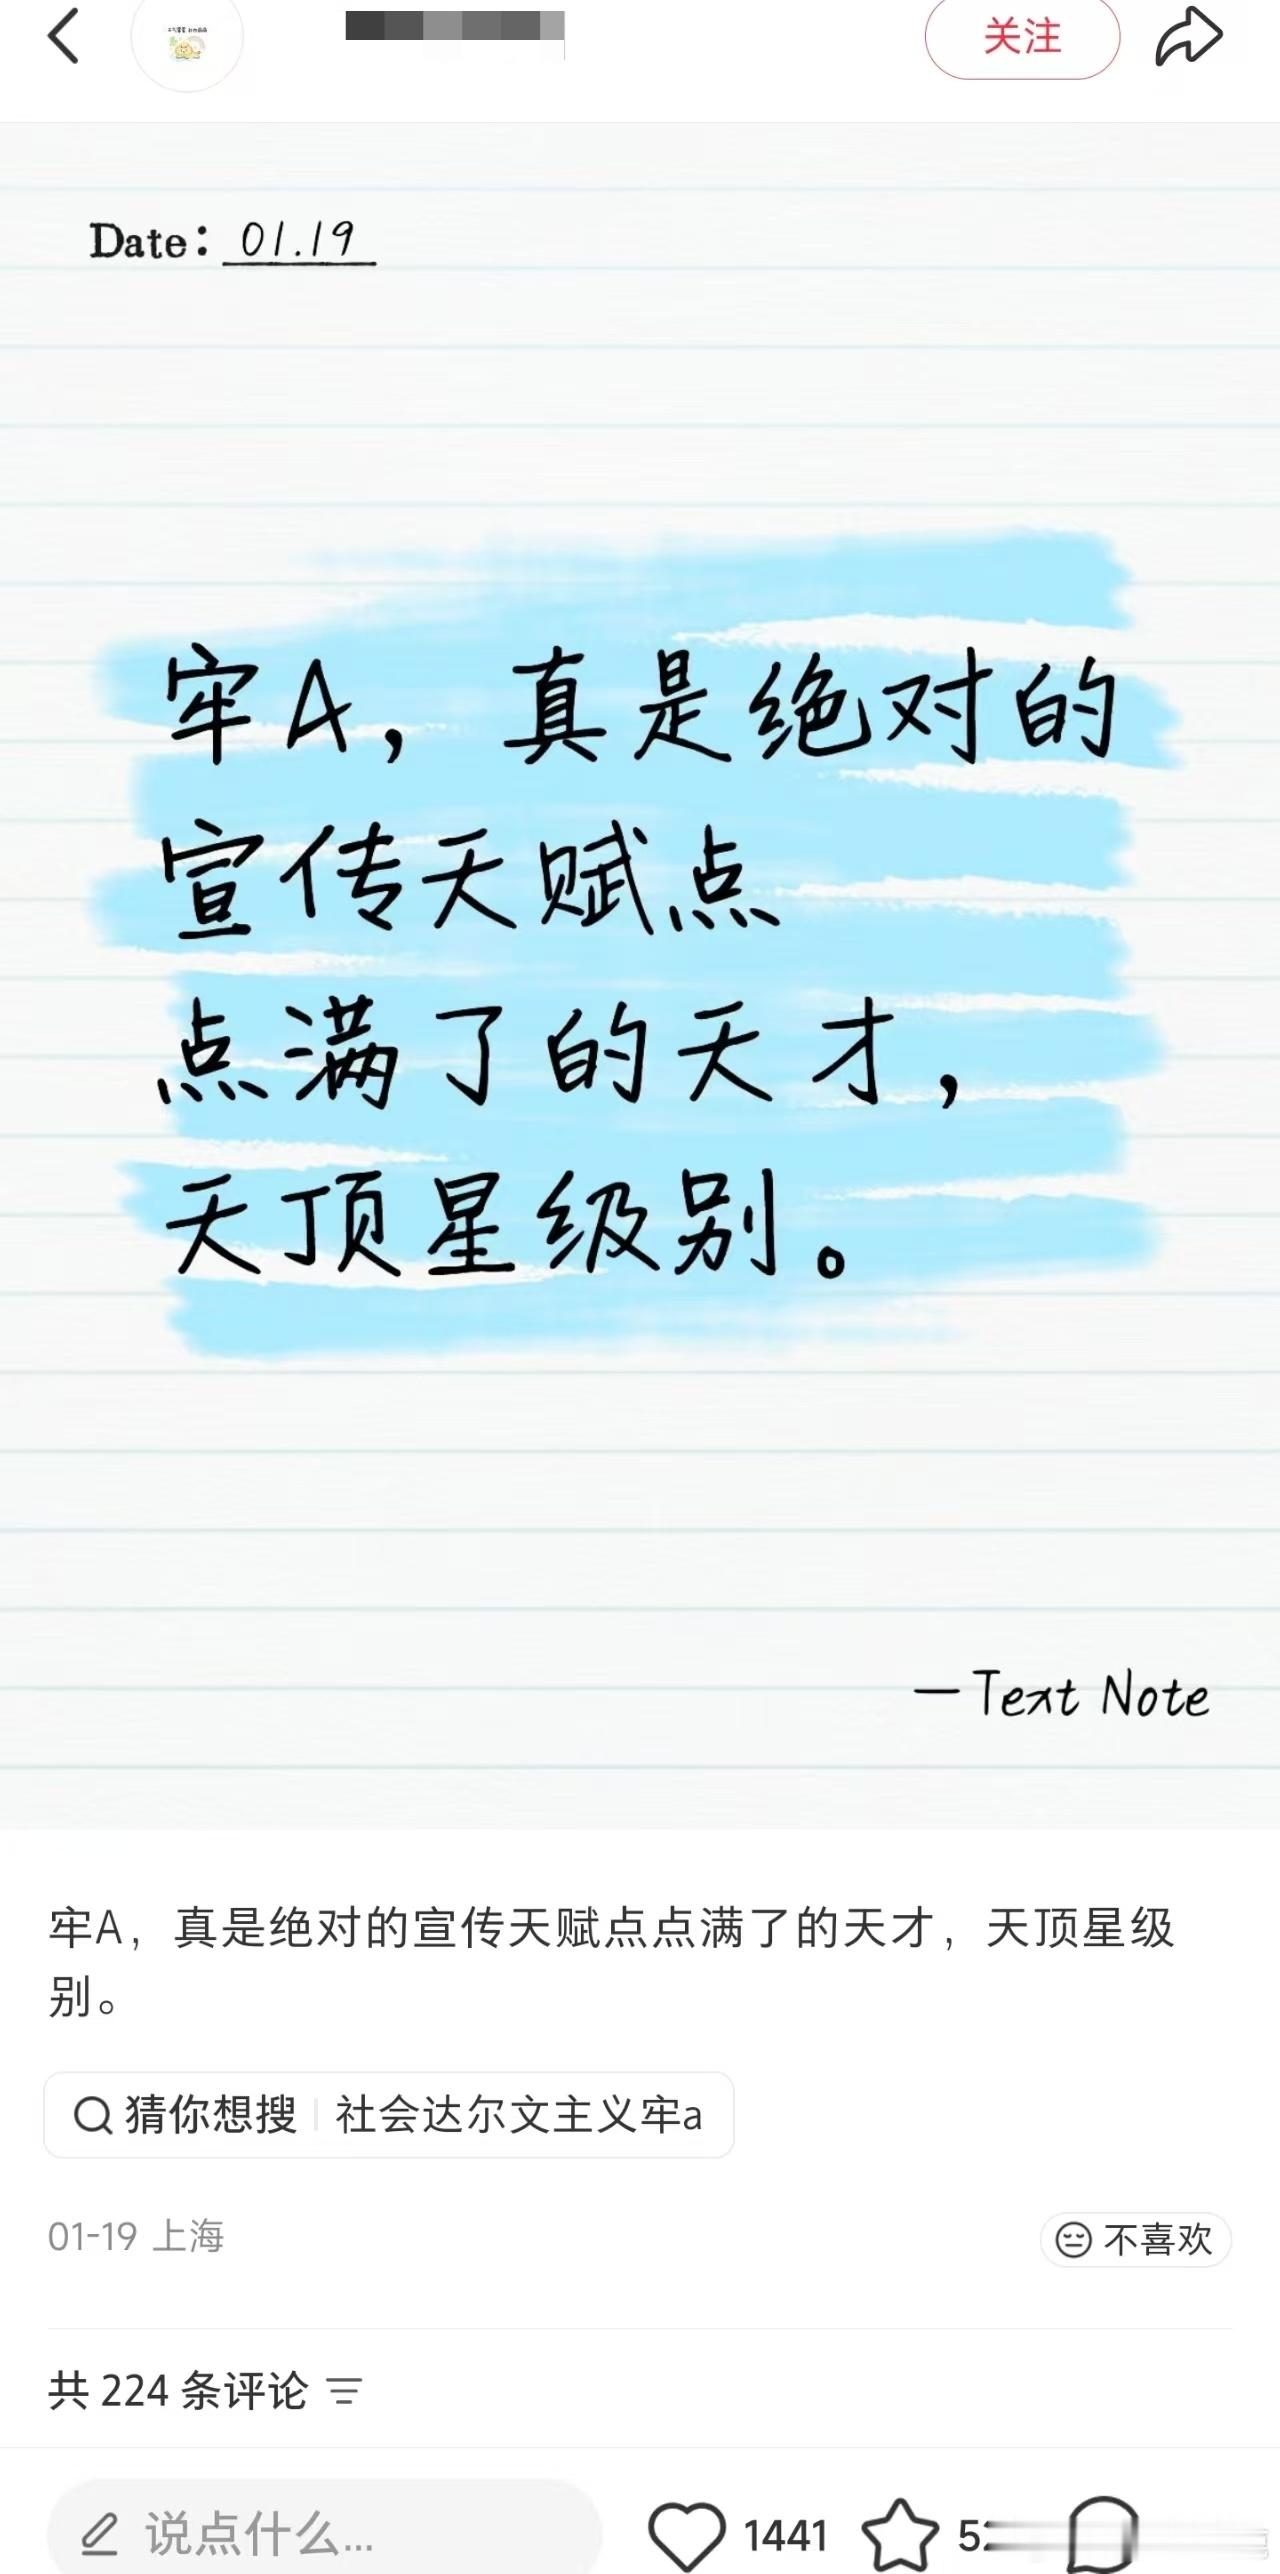 关注
Date: 01.19
牢A，真是绝对的
宣传天赋点
点满了的天才，
天顶星级别。
—Text Note
牢A，真是绝对的宣传天赋点点满了的天才，天顶星级
别。
猜你想搜 社会达尔文主义牢a
01-19 上海
不喜欢
共 224 条评论
说点什么... 1441